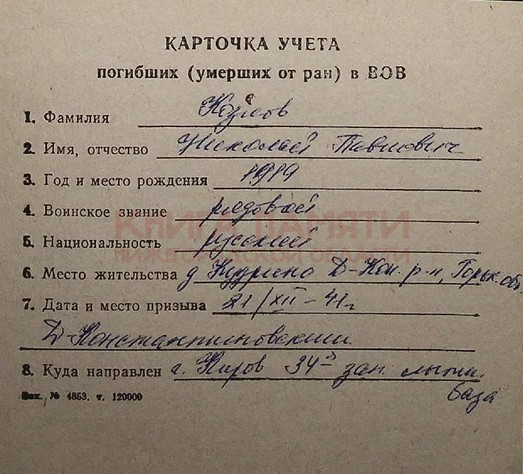 КАРТОЧКА УЧЕТА
погибших (умерших от ран) в ВОВ
1. Фамилия Козлов
2. Имя, отчество Николай Павлович
3. Год и место рождения 1919
4. Воинское звание рядовой
КНИГА ПАМЯТИ
НИЖЕГОРОДСКОЙ ОБЛАСТИ
5. Национальность русский
6. Место жительства д Кудрино Д-Кон. р-н, Горьк обл.
7. Дата и место призыва 21/XII-41г
Д-Константиновский
8. Куда направлен г. Киров 34й зап. лыжн.
база
Зак. № 4853, т. 120000